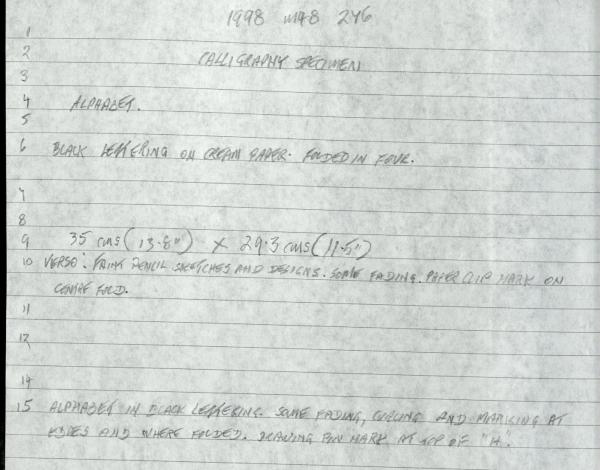 1998 M48 246
1
2 CALLIGRAPHY SPECIMEN
3
4 ALPHABET.
5
6 BLACK LETTERING ON CREAM PAPER. FOLDED IN FOUR.
7
8
9 35 cms (13.8") x 29.3 cms (11.5")
10 VERSO: FAINT PENCIL SKETCHES AND DESIGNS. SOME FADING. PAPER CLIP MARK ON
CENTRE FOLD.
11
12
14
15 ALPHABET IN BLACK LETTERING. SOME FADING, CURLING AND MARKING AT
EDGES AND WHERE FOLDED. DRAWING PIN MARK AT TOP OF "H.